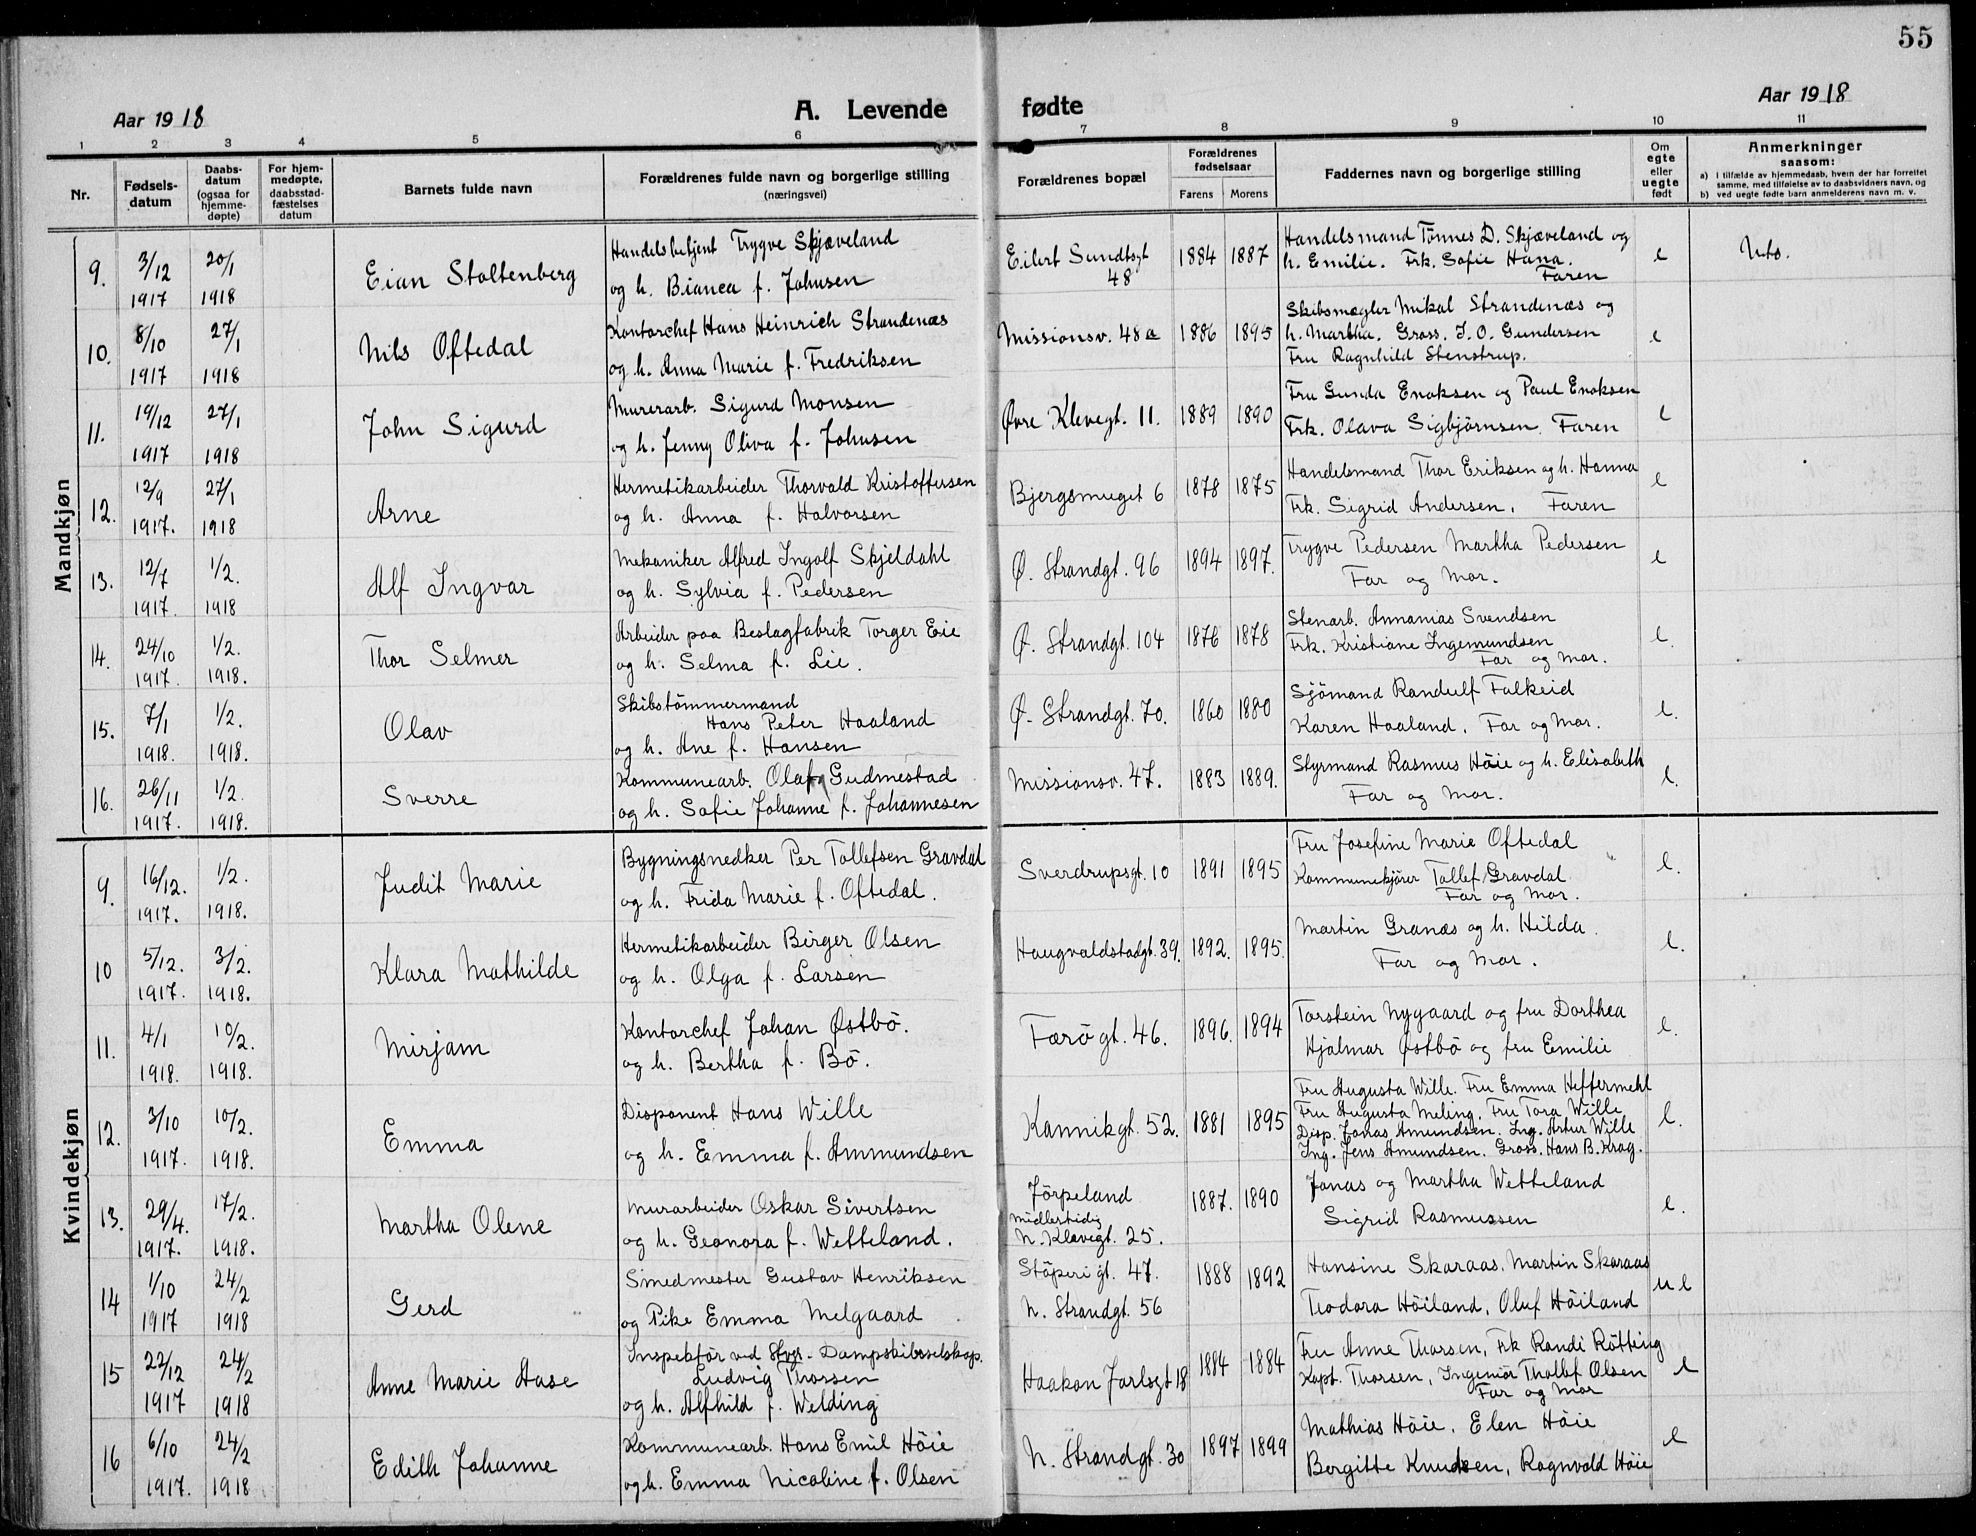 55
Aar 1918
A. Levende fødte
Aar 1918
1 2 3 4 5 6 7 8 9 10 11
Nr.
Fødsels-
datum
Daabs-
datum
(ogsaa for
hjemme-
døpte)
For hjem-
medøpte,
daabsstad-
fæstelses
datum
Barnets fulde navn
Forældrenes fulde navn og borgerlige stilling
(næringsvei)
Forældrenes bopæl
Forældrenes
fødselsaar
Farens Morens
Faddernes navn og borgerlige stilling
Om
egte
eller
uegte
født
Anmerkninger
saasom:
a) I tilfælde av hjemmedaab, hvem der har forrettet
samme, med tilføielse av to daabsvidners navn, og
b) ved uegte fødte barn anmelderens navn m. v.
Mandkjøn
9. 3/12 1917 20/1 1918 Eian Stoltenberg
Handelsbetjent Trygve Skjæveland
og h. Bianca f. Johnsen
Eilert Sundtsgt 48 1884 1887
Handelsmand Tønnes D. Skjæveland og
h. Emilie. Frk. Sofie Hana.
Faren
e
10. 8/10 1917 27/1 1918 Nils Oftedal
Kontorchef Hans Heinrich Strandenæs
og h. Anna Marie f. Fredriksen
Missionsv. 48a 1886 1895
Skibsmægler Mikal Strandenæs og
h. Martha. Gross. J. O. Gundersen
Fru Ragnhild Stenstrup.
e
11. 19/12 1917 27/1 1918 John Sigurd
Murerarb. Sigurd Monsen
og h. Jenny Oliva f. Johnsen
Øvre Klevegt. 11. 1889 1890
Fru Gunda Enoksen og Paul Enoksen
Frk. Olava Sigbjørnsen. Faren
e
12. 12/9 1917. 27/1 1918 Arne
Hermetikarbeider Thorvald Kristoffersen
og h. Anna f. Halvorsen
Bjergsmuget 6 1878 1875
Handelsmand Thor Eriksen og h. Hanna
Frk. Sigrid Andersen. Faren
e
13. 12/7 1917. 1/2. 1918 Alf Ingvar
Mekaniker Alfred Ingolf Skjeldahl
og h. Sylvia f. Pedersen
Ø. Strandgt. 96 1894 1897.
Trygve Pedersen Martha Pedersen
Far og Mor.
e
14. 24/10 1917. 1/2. 1918. Thor Selmer
Arbeider paa Beslagfabrik Torger Eie
og h. Selma f. Lie.
Ø. Strandgt. 104 1876 1878
Stenarb. Annanias Svendsen
Frk. Kristiane Ingemundsen
Far og Mor.
e.
15. 7/1 1918. 1/2. 1918. Olav
Skibstømmermand
Hans Peter Haaland
og h. Ane f. Hansen
Ø. Strandgt. 70. 1860 1880
Sjømand Randulf Falkeid
Karen Haaland. Far og Mor.
e.
16. 26/11 1917. 1/2. 1918. Sverre
Kommunearb. Olaf Gudmestad
og h. Sofie Johanne f. Johannesen
Missionsv. 47. 1883 1889.
Styrmand Rasmus Höie og h. Elisabeth
Far og Mor.
e.
Kvindekjøn
9. 16/12. 1917. 1/2. 1918. Judit Marie
Bygningsnedker Per Tollefsen Gravdal
og h. Frida Marie f. Oftedal.
Sverdrupsgt. 10 1891 1895
Fru Josefine Marie Oftedal
Kommunekjører Tollef Gravdal
Far og Mor.
e.
10 5/12. 1917. 3/2. 1918. Klara Mathilde
Hermetikarbeider Birger Olsen
og h. Olga f. Larsen
Haugvaldstadgt. 39. 1892. 1895.
Martin Granæs og h. Hilda.
Far og Mor.
e.
11. 4/1 1918. 10/2. 1918. Mirjam
Kontorchef Johan Østbö.
og h. Bertha f. Bö.
Færö gt. 46. 1896. 1894
Torstein Nygaard og fru Dorthea
Hjalmar Østbö og fru Emilie
e.
12. 3/10 1917. 10/2. 1918. Emma
Disponent Hans Wille
og h. Emma f. Ammundsen
Kannikgt. 52. 1881 1895
Fru Augusta Wille. Fru Emma Heftermehl
Fru Augusta Meling. Fru Tora Wille
Disp. Jonas Amundsen. Ing. Artur Wille
Ing. Jens Amundsen. Gross. Hans B. Krag.
e.
13. 29/4. 1917. 17/2. 1918. Martha Olene
Murarbeider Oskar Sivertsen
og h. Geonora f. Wetteland.
Jörpeland
midlertidig
N. Klevegt. 25. 1887. 1890
Jonas og Martha Wetteland
Sigrid Rasmussen
e.
14 1/10 1917 24/2 1918 Gerd
Smedmester Gustav Henriksen
og Pike Emma Melgaard
Stöperigt. 47.
N. Strandgt. 56 1888 1892
Hansine Skaraas. Martin Skaraas
Teodora Höiland, Oluf Höiland
u e
15 22/12 1917 24/2 1918 Anne Marie Aase
Inspektör ved Stvgr. Dampskibsselskap.
Ludvig Thorsen
og h. Alfhild f. Welding
Haakon Jarlsgt 18 1884 1884
Fru Anne Thorsen, Frk Randi Rötting
Kapt. Thorsen, Ingeniör Thollef Olsen
Far og Mor
e
16 6/10 1917. 24/2 1918 Edith Johanne
Kommunearb. Hans Emil Höie
og h. Emma Nicoline f. Olsen
N. Strandgt. 30 1897 1899
Mathias Höie. Elen Höie
Bergitte Knudsen, Ragnvald Höie
e